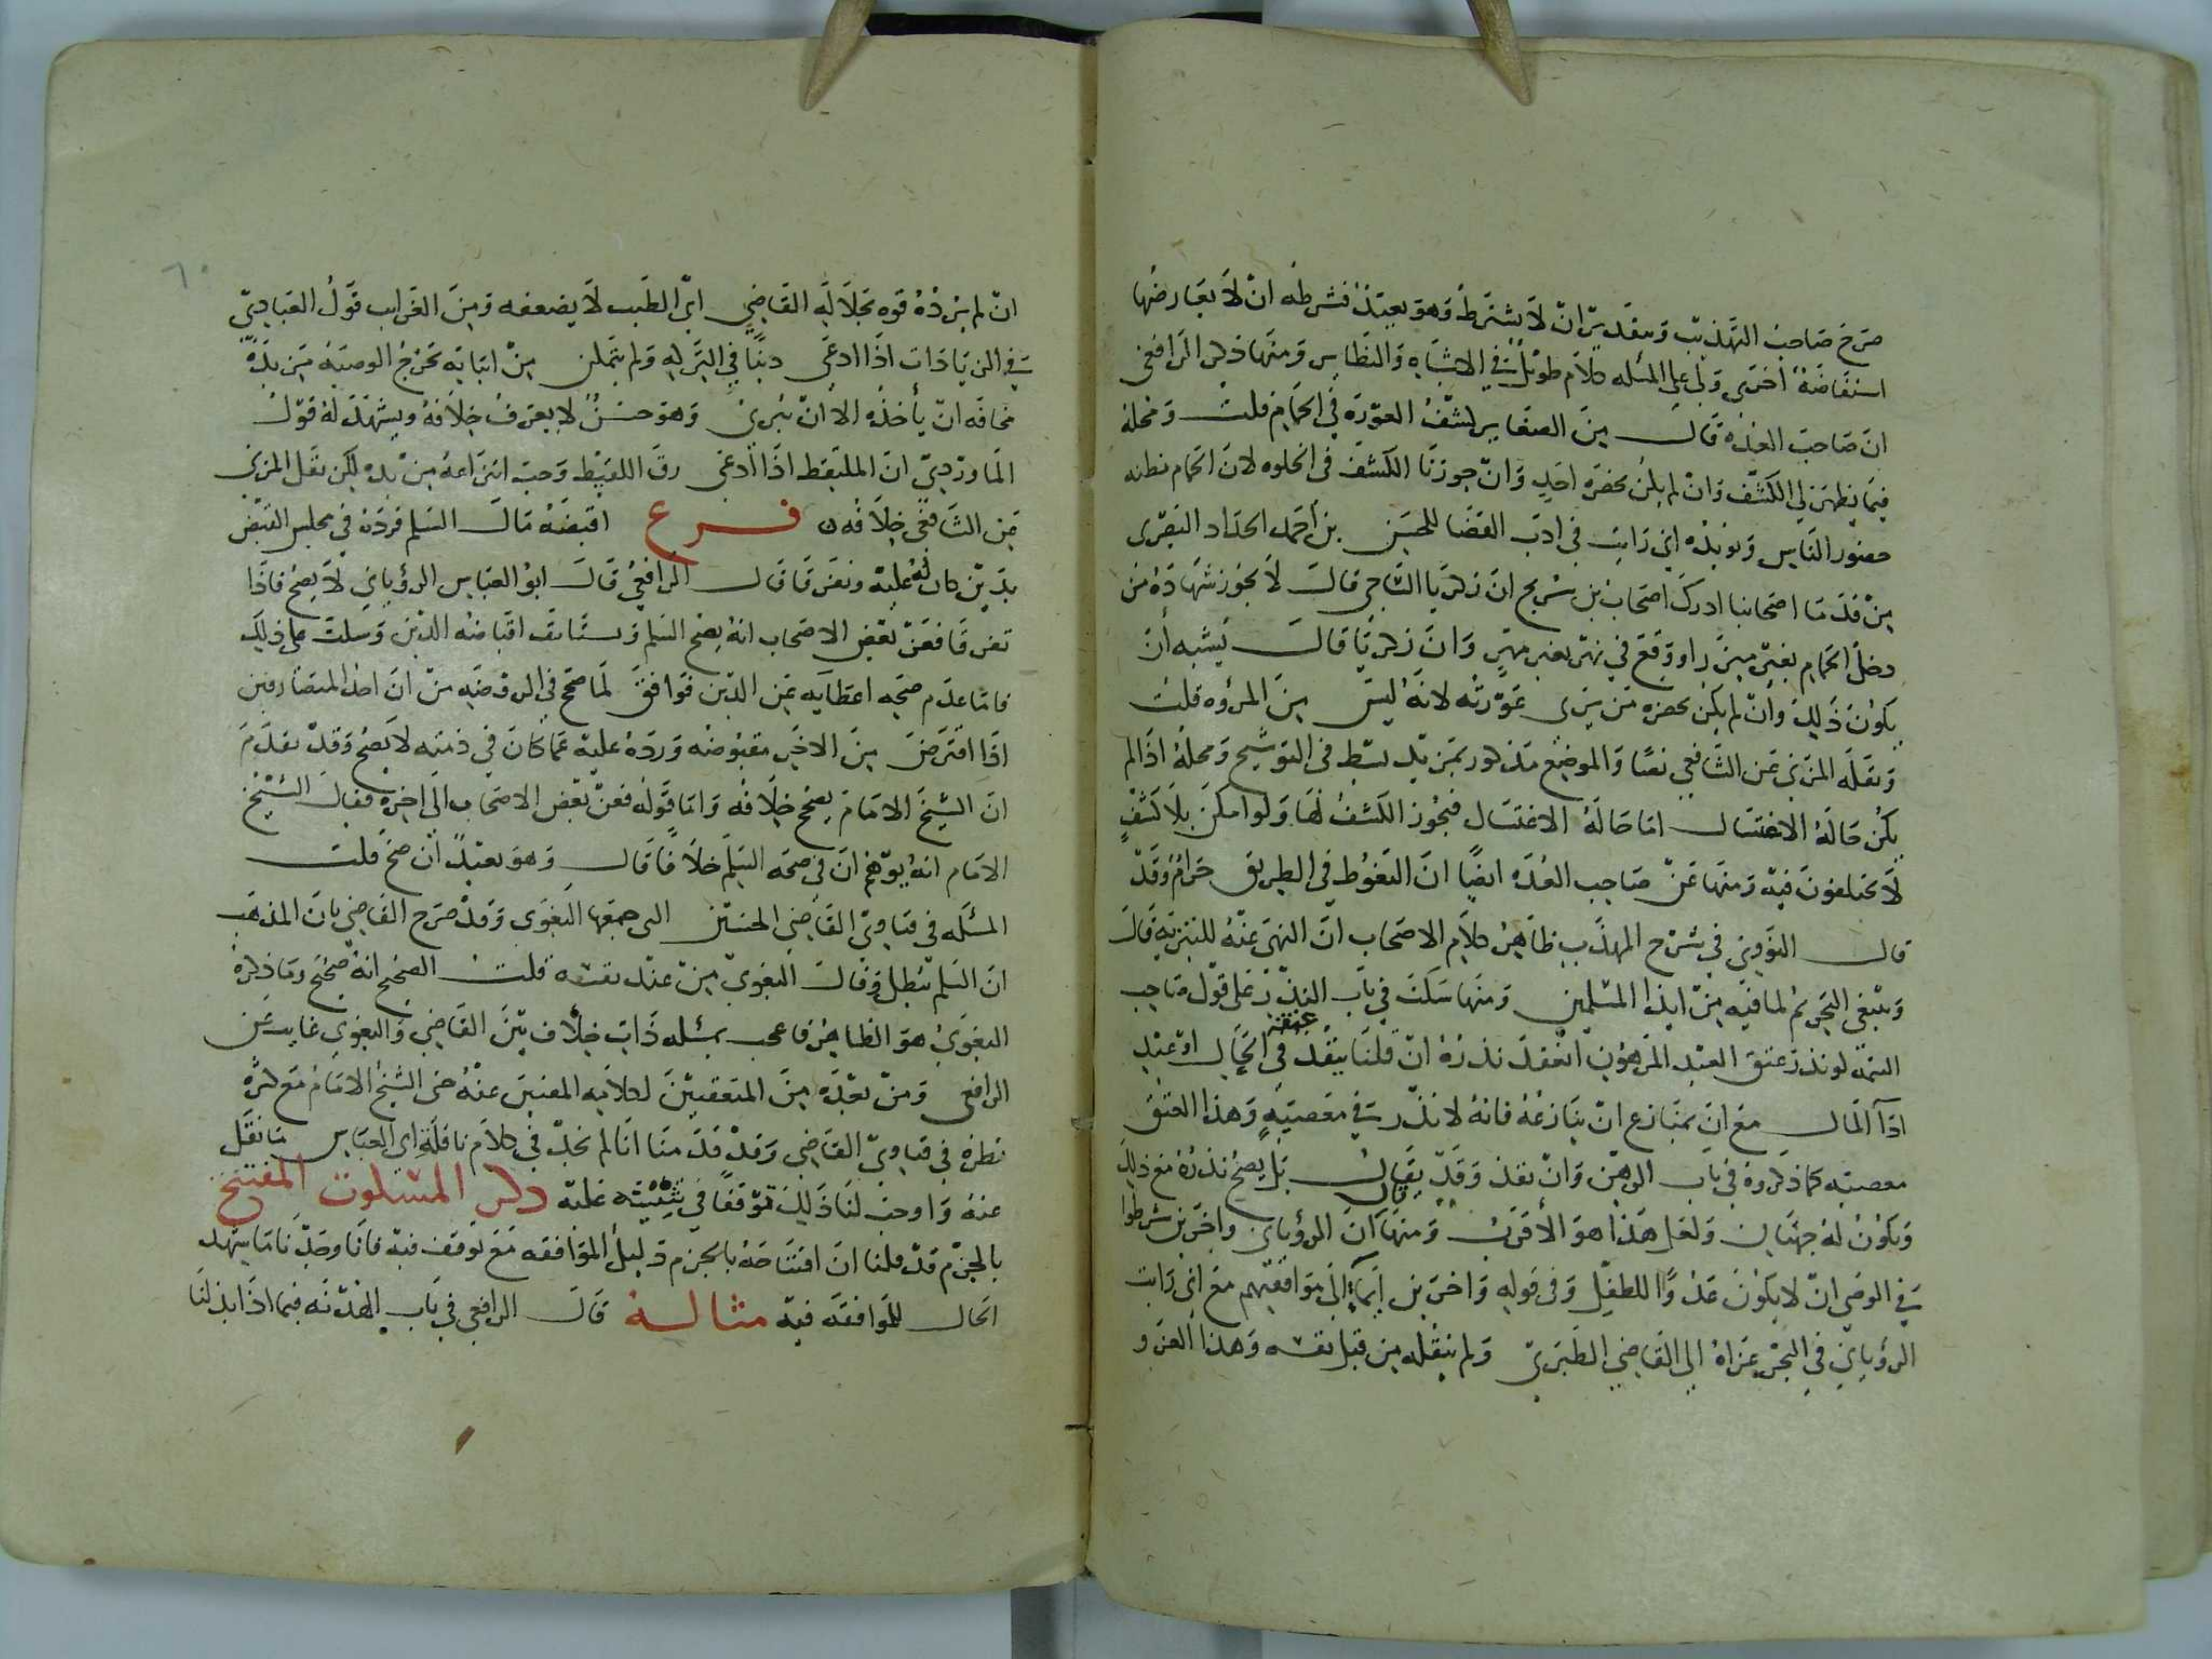 صرح صاحب التهذيب وبتقدير ان لا يشترط وهو بعيد فشرطه ان لا يعارضها
استفاضة اخرى ولى على المسئله كلام طويل في الاشباه والنظاير ومنها ذكر الرافعى
ان صاحب العده قال من الصغاير كشف العورة في الحمام قلت ومحله
فيما يظهر لي الكشف وان لم يكن بحضرة احد وان جوزنا الكشف في الخلوه لان الحمام مظنه
حضور الناس ويويده اني رايت في ادب القضا للحسين بن احمد الحداد البصرى
من قدما اصحابنا ادرك اصحاب بن سريج ان زكريا الساجى قال لا يجوز شهادة من
دخل الحمام بغير ميزر او وقع في نهر بغير ميزر وان زكريا قال يشبه ان
يكون ذلك وان لم يكن بحضره من يرى عورته لانه ليس من المروه قلت
ونقله المزنى عن الشافعي نصا والموضع مذكور بمزيد بسط في التوشيح ومحله اذا لم
يكن حالة الاغتسال اما حالة الاغتسال فيجوز الكشف لها ولو امكن بلا كشف
لا يختلفون فيه ومنها عن صاحب العده ايضا ان التغوط في الطريق حرام وقد
قال النووي في شرح المهذب ظاهر كلام الاصحاب ان النهى عنه للتنزيه قال
وينبغى التحريم لما فيه من ايذا المسلمين ومنها سكت في باب النذر على قول صاحب
التتمه لو نذر عتق العبد المرهون انعقد نذره ان قلنا ينفذ عتقه في الحال او عند
ادآ المال مع ان لمنازع ان ينازعه فانه لا نذر في معصية وهذا العتق
معصيه كما ذكروه في باب الرهن وان نفذ وقد يقال بل يصح نذره مع ذلك
ويكون له جهتان ولعل هذا هو الاقرب ومنها قال ان الرؤياني واخرين شرطوا
في الوصى ان لا يكون عدوا للطفل وفي قوله واخرين ايمآء الى موافقتهم مع اني رايت
الرؤياني في البحر عزاه الي القاضي الطبري ولم ينقله من قبل نفسه وهذا العزو
ان لم يزده قوه بجلالة القاضي ابي الطيب لا يضعفه ومن الغرايب قول العبادي
في الزيادات اذا ادعى دينا في التركه ولم يتمكن من اثباته تخرج الوصيه من يده
مخافه ان يأخذه الا ان يبرئ وهو حسن لا يعرف خلافه ويشهد له قول
الماوردي ان الملتقط اذا ادعى رق اللقيط وجب انتزاعه من يده لكن نقل المزني
عن الشافعي خلافه فرع اقبضه مال السلم فرده في مجلس القبض
بدين كان له عليه وتفرقا قال الرافعي قال ابو العباس الرؤياني لا يصح فاذا
تفرقا فعن بعض الاصحاب انه يصح السلم ويستانف اقباضه الدين وسكت على ذلك
فاما عدم صحة اعطآيه عن الدين فوافق لما صح في الروضه من ان احد المتصارفين
اذا اقترض من الاخر مقبوضه ورده عليه عما كان في ذمته لا يصح وقد تقدم
ان الشيخ الامام يصح خلافه واما قوله فعن بعض الاصحاب الى اخره فقال الشيخ
الامام انه يوهم ان في صحه السلم خلافا قال وهو بعيد ان صح قلت
المسئله في فتاوي القاضي الحسين التى جمعها البغوى وقد صرح القاضي بان المذهب
ان السلم يبطل وقال البغوي من عند نفسه قلت الصحيح انه صحيح وما ذكره
البغوى هو الظاهر فاعجب بمسئله ذات خلاف بين القاضي والبغوي غابت عن
الرافعي ومن بعده من المتعقبين لكلامه المعنيين عنه حتى الشيخ الامام مع كثرة
نظره في فتاوي القاضي وقد قدمنا انا لم نجد في كلام ناقله اي العباس ما نقل
عنه واوجب لنا ذلك توقفا في تثبته عليه ذكر المسكوت المفتتح
بالجزم قد قلنا ان افتتاحه بالجزم دليل الموافقه مع توقف فيه فانا وجدنا ما يشهد
الحال للموافقه فيه مثاله قال الرافعي في باب الهدنه فيما اذا بذلنا